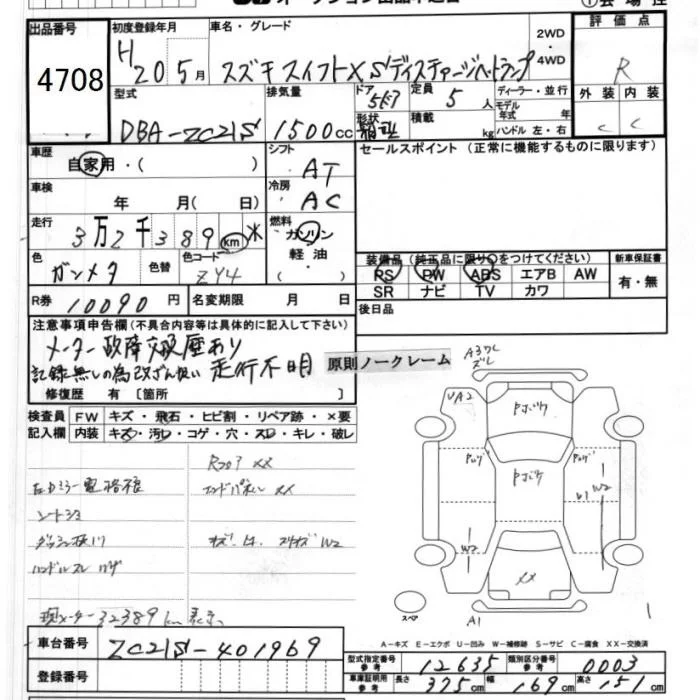 出品番号
4708
初度登録年月
H 20 5月
車名・グレード
スズキ スイフト XS ディスチャージヘッドランプ
2WD
4WD
評価点
R
外装 内装
C C
型式
DBA-ZC21S
排気量
1500cc
ドア
形状
定員
5人
積載
kg
ディーラー・並行
モデル年式 年
ハンドル 左・右
車歴
自家用・( )
シフト
AT
セールスポイント (正常に機能するものに限ります)
車検
年 月 ( 日)
冷房
AC
走行
3万2千389 km ※
燃料
ガソリン
軽油
・( )
色
ガンメタ
色替
色コード
ZY4
装備品 (純正品に限り○をつけてください)
PS PW ABS エアB AW
SR ナビ TV カワ
新車保証書
有・無
R券
10090円
名変期限 月 日
後日品
注意事項申告欄 (不具合内容等は具体的に記入して下さい)
メーター故障交換歴あり
記録無しの為改ざん扱い 走行不明
原則ノークレーム
修復歴 有 〔箇所 〕
検査員記入欄
FW キズ・飛石・ヒビ割・リペア跡・×要
内装 キズ・汚レ・コゲ・穴・スレ・キレ・破レ
Rフロア XX
エンドパネル XX
ハンドルスレ
W2
現メーター32389km表示
UA2
W2
W1
W2
XX
A1
スペア
A-キズ E-エクボ U-凹み W-補修跡 S-サビ C-腐食 XX-交換済
車台番号
ZC21S-401969
登録番号
型式指定番号参考
12635
類別区分番号参考
0003
車庫証明用参考
長さ 375cm 幅 169cm 高さ 151cm